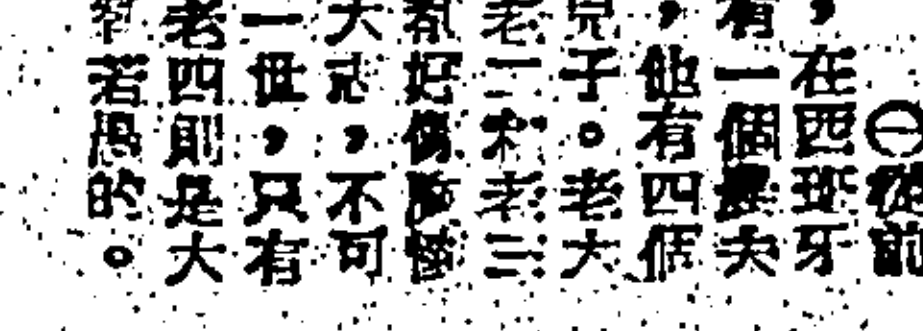 ㊀從前
，在西班牙
有一個農夫
，他有四個
兒子。老大
老二和老三
好
大志，不可
一世，只有
老四則是大
智若愚的。